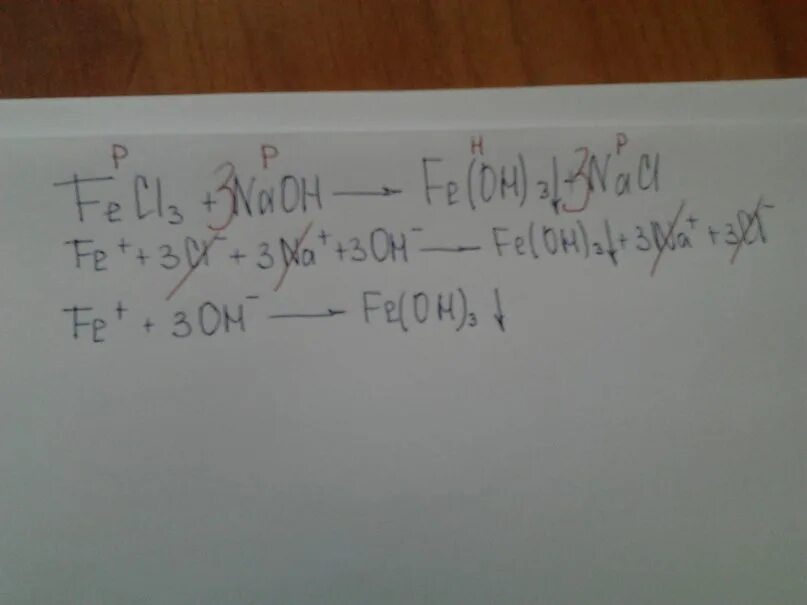 Р Р Н Р
FeCl₃ + 3NaOH → Fe(OH)₃↓ + 3NaCl
Fe⁺ + 3Cl⁻ + 3Na⁺ + 3OH⁻ → Fe(OH)₃↓ + 3Na⁺ + 3Cl⁻
Fe⁺ + 3OH⁻ → Fe(OH)₃↓